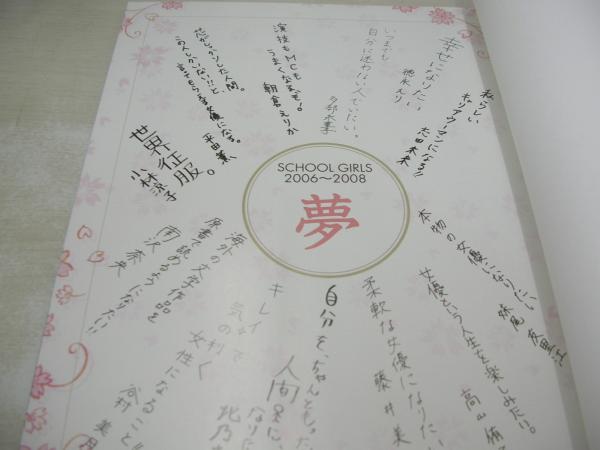 SCHOOL GIRLS
2006～2008
夢
幸せになりたい
徳永えり
私らしい
キャリアウーマンになる!!
志田未来
いつまでも
自分に迷わない人でいたい。
多部未華子
演技もMCも
うまくなるぞ!
朝倉えりか
この人しかいない!!と
言ってもらえる女優になる。
平田薫
世界征服。
小林涼子
海外の文学作品を
原書で読めるようになりたい!!
南沢奈央
キレイで
気の利く
女性になること!!
河村美
自分を、ちゃんともった
人間に
なり
北乃
柔軟な女優になりたい
藤井美
女優という人生を楽しみたい。
高山侑
本物の女優になりたい